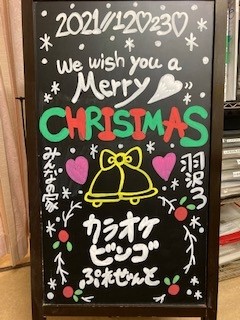 2021//12♡23♡
We wish you a
Merry
CHRISTMAS
みんなの家
羽沢3
カラオケ
ビンゴ
ぷれぜんと